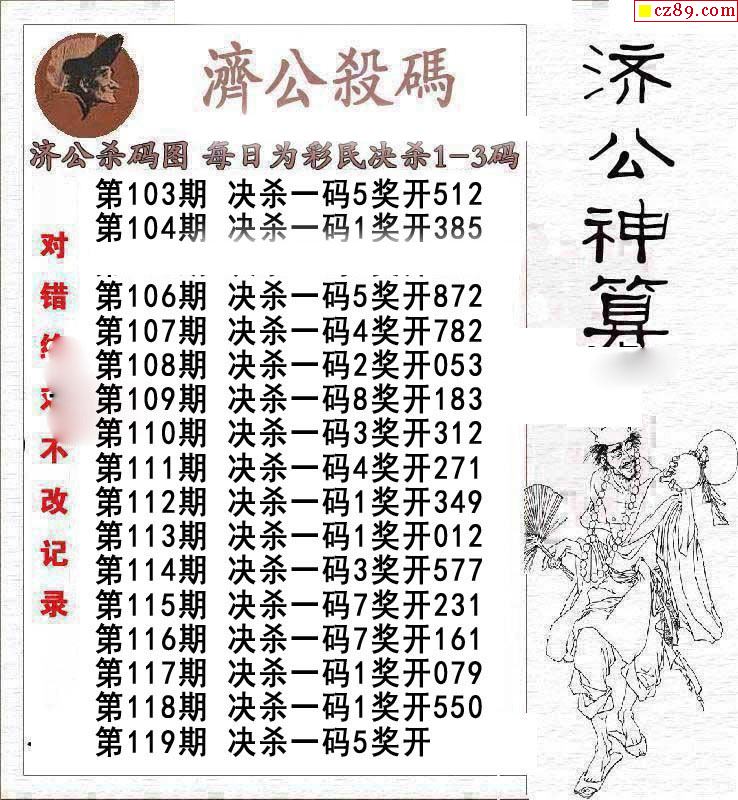 cz89.com
濟公殺碼
济公杀码图 每日为彩民决杀1-3码
第103期 决杀一码5奖开512
第104期 决杀一码1奖开385
第106期 决杀一码5奖开872
第107期 决杀一码4奖开782
第108期 决杀一码2奖开053
第109期 决杀一码8奖开183
第110期 决杀一码3奖开312
第111期 决杀一码4奖开271
第112期 决杀一码1奖开349
第113期 决杀一码1奖开012
第114期 决杀一码3奖开577
第115期 决杀一码7奖开231
第116期 决杀一码7奖开161
第117期 决杀一码1奖开079
第118期 决杀一码1奖开550
第119期 决杀一码5奖开
对错
不改记录
济公神算